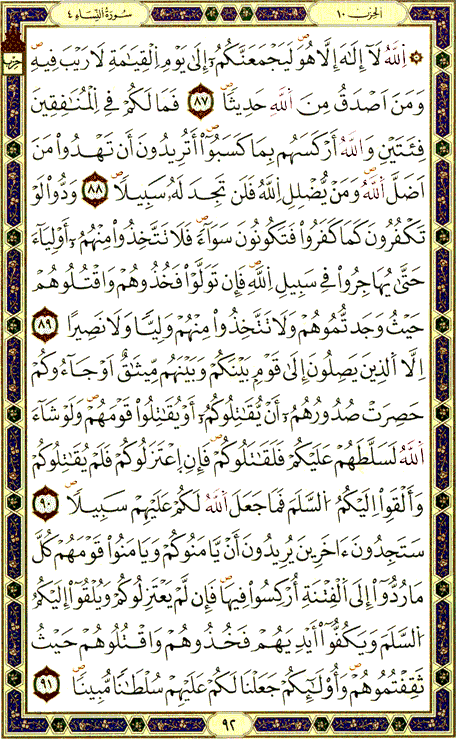 سورة النساء ٤
الحزب ١٠
اللَّهُ لَا إِلَهَ إِلَّا هُوَ لَيَجْمَعَنَّكُمُ إِلَى يَوْمِ الْقِيَامَةِ لَا رَيْبَ فِيهِ
وَمَنَ اَصْدَقُ مِنَ اَللَّهِ حَدِيثًا ٨٧ فَمَا لَكُمْ فِي الْمُنَافِقِينَ
فِئَتَيْنِ وَاللَّهُ أَرْكَسَهُم بِمَا كَسَبُوا أَتُرِيدُونَ أَن تَهْدُوا مَنَ
اَضَلَّ اَللَّهُ وَمَنْ يُضْلِلِ اِللَّهُ فَلَن تَجِدَ لَهُ سَبِيلًا ٨٨ وَدُّوا لَوْ
تَكْفُرُونَ كَمَا كَفَرُوا فَتَكُونُونَ سَوَآءً فَلَا تَتَّخِذُوا مِنْهُمُ أَوْلِيَآءَ
حَتَّى يُهَاجِرُوا فِي سَبِيلِ اِللَّهِ فَإِن تَوَلَّوْا فَخُذُوهُمْ وَاقْتُلُوهُمْ
حَيْثُ وَجَدتُّمُوهُمْ وَلَا تَتَّخِذُوا مِنْهُمْ وَلِيًّا وَلَا نَصِيرًا ٨٩
اِلَّا اَلَّذِينَ يَصِلُونَ إِلَى قَوْمٍ بَيْنَكُمْ وَبَيْنَهُم مِّيثَاقٌ اَوْ جَآءُوكُمْ
حَصِرَتْ صُدُورُهُمُ أَنْ يُّقَاتِلُوكُمُ أَوْ يُقَاتِلُوا قَوْمَهُمْ وَلَوْ شَآءَ
اَللَّهُ لَسَلَّطَهُمْ عَلَيْكُمْ فَلَقَاتَلُوكُمْ فَإِنِ اِعْتَزَلُوكُمْ فَلَمْ يُقَاتِلُوكُمْ
وَأَلْقَوِا اِلَيْكُمُ السَّلَمَ فَمَا جَعَلَ اَللَّهُ لَكُمْ عَلَيْهِمْ سَبِيلًا ٩٠
سَتَجِدُونَ ءَاخَرِينَ يُرِيدُونَ أَنْ يَّامَنُوكُمْ وَيَامَنُوا قَوْمَهُمْ كُلَّ
مَا رُدُّوا إِلَى اَلْفِتْنَةِ أُرْكِسُوا فِيهَا فَإِن لَّمْ يَعْتَزِلُوكُمْ وَيُلْقُوا إِلَيْكُمُ
السَّلَمَ وَيَكُفُّوا أَيْدِيَهُمْ فَخُذُوهُمْ وَاقْتُلُوهُمْ حَيْثُ
ثَقِفْتُمُوهُمْ وَأُولَئِكُمْ جَعَلْنَا لَكُمْ عَلَيْهِمْ سُلْطَانًا مُّبِينًا ٩١
٩٢